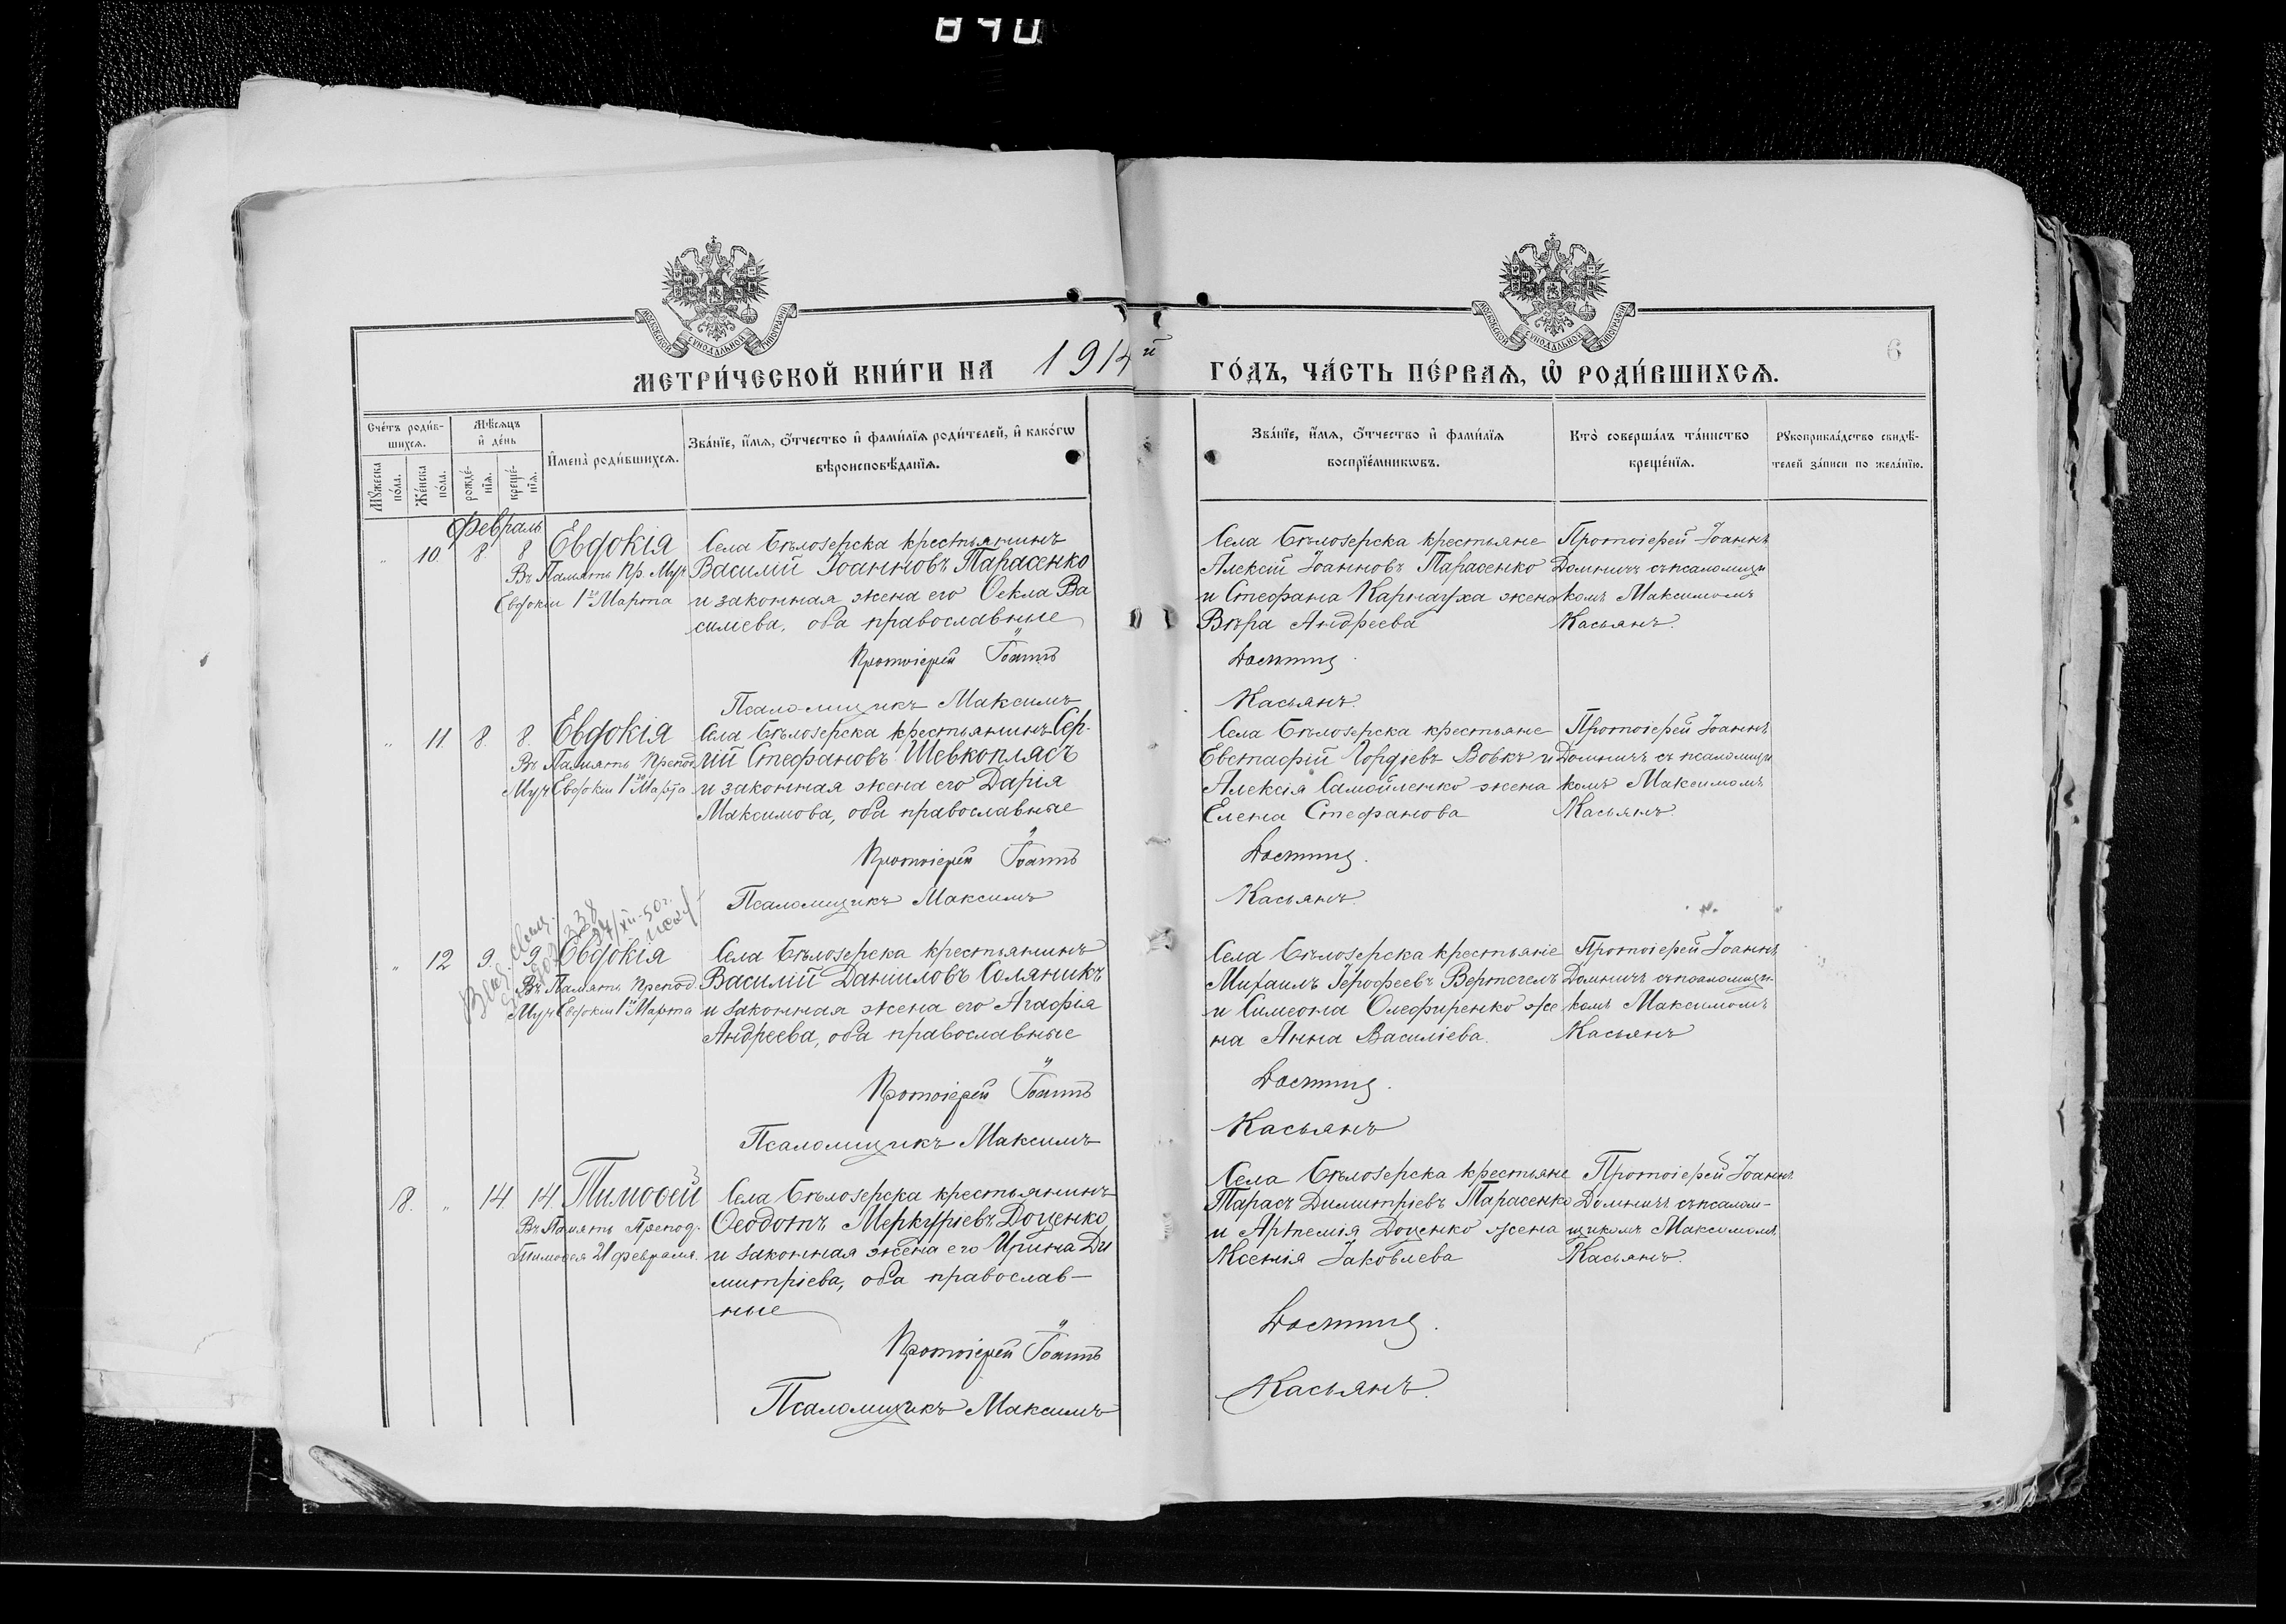 840
МОСКОВСКОЙ СѴНОДАЛЬНОЙ ТИПОГРАФІИ
МОСКОВСКОЙ СѴНОДАЛЬНОЙ ТИПОГРАФІИ
6
МЕТРИ́ЧЕСКОЙ КНИ́ГИ НА 1914й ГО́ДЪ, ЧА́СТЬ ПЕ́РВАѦ, Ѡ҆ РОДИ́ВШИХСѦ.
Сче́тъ роди́вшихсѧ.
Мꙋ́жеска по́ла.
Же́нска по́ла.
Мѣ́сѧцъ и҆ де́нь
рожде́нїѧ.
креще́нїѧ.
И҆мена̀ роди́вшихсѧ.
Зва́нїе, и҆́мѧ, ѻ҆́тчество и҆ фами́лїѧ роди́телей, и҆ како́гѡ
вѣроисповѣ́данїѧ.
Зва́нїе, и҆́мѧ, ѻ҆́тчество и҆ фами́лїѧ
воспрїе́мникѡвъ.
Кто̀ соверша́лъ та́инство
креще́нїѧ.
Рꙋкоприкла́дство свидѣ́-
телей за́писи по жела́нїю.
Февраль
" 10. 8. 8 Евдокія
Въ Память Пр. Муч.
Евдокіи 1го Марта
Села Бѣлозерска крестьянинъ
Василій Іоанновъ Тарасенко
и законная жена его Ѳекла Ва
силіева, оба православные
Протоіерей Іоаннъ
Псаломщикъ Максимъ
Села Бѣлозерска крестьяне
Алексій Іоанновъ Тарасенко
и Стефана Карнауха жена
Вѣра Андреева
Домничъ
Касьянъ.
Протоіерей Іоаннъ
Домничъ съ псаломщи
комъ Максимомъ
Касьянъ.
" 11. 8. 8. Евдокія
Въ Память Препод
Муч Евдокіи 1го Марта
Села Бѣлозерска крестьянинъ Сер-
гій Стефановъ Шевкоплясъ
и законная жена его Дарія
Максимова, оба православные
Протоіерей Іоаннъ
Псаломщикъ Максимъ
Села Бѣлозерска крестьяне
Евстафій Гордіевъ Вовкъ и
Алексія Самойленко жена
Елена Стефанова
Домничъ.
Касьянъ.
Протоіерей Іоаннъ
Домничъ съ псаломщи
комъ Максимомъ
Касьянъ.
27/XII-50г.
" 12 9. 9. Евдокія
Въ Память Препод.
Муч Евдокіи 1го Марта
Села Бѣлозерска крестьянинъ
Василій Даніиловъ Соляникъ
и законная жена его Агафія
Андреева, оба православные
Протоіерей Іоаннъ
Псаломщикъ Максимъ
Села Бѣлозерска крестьяне
Михаилъ Іерофеевъ Вертегелъ
и Симеона Олефиренко же
на Анна Василіева.
Домничъ.
Касьянъ
Протоіерей Іоаннъ
Домничъ съ псаломщи-
комъ Максимомъ
Касьянъ
8. " 14. 14. Тимоѳей
Въ Память Препод.
Тимоѳея 21 февраля.
Села Бѣлозерска крестьянинъ
Ѳеодотъ Меркуріевъ Доценко
и законная жена его Ирина Ди
митріева, оба православ-
ные
Протоіерей Іоаннъ
Псаломщикъ Максимъ
Села Бѣлозерска крестьяне
Тарасъ Димитріевъ Тарасенко
и Артемія Доценко жена
Ксенія Іаковлева
Домничъ.
Касьянъ.
Протоіерей Іоаннъ
Домничъ съ псалом-
щикомъ Максимомъ
Касьянъ.